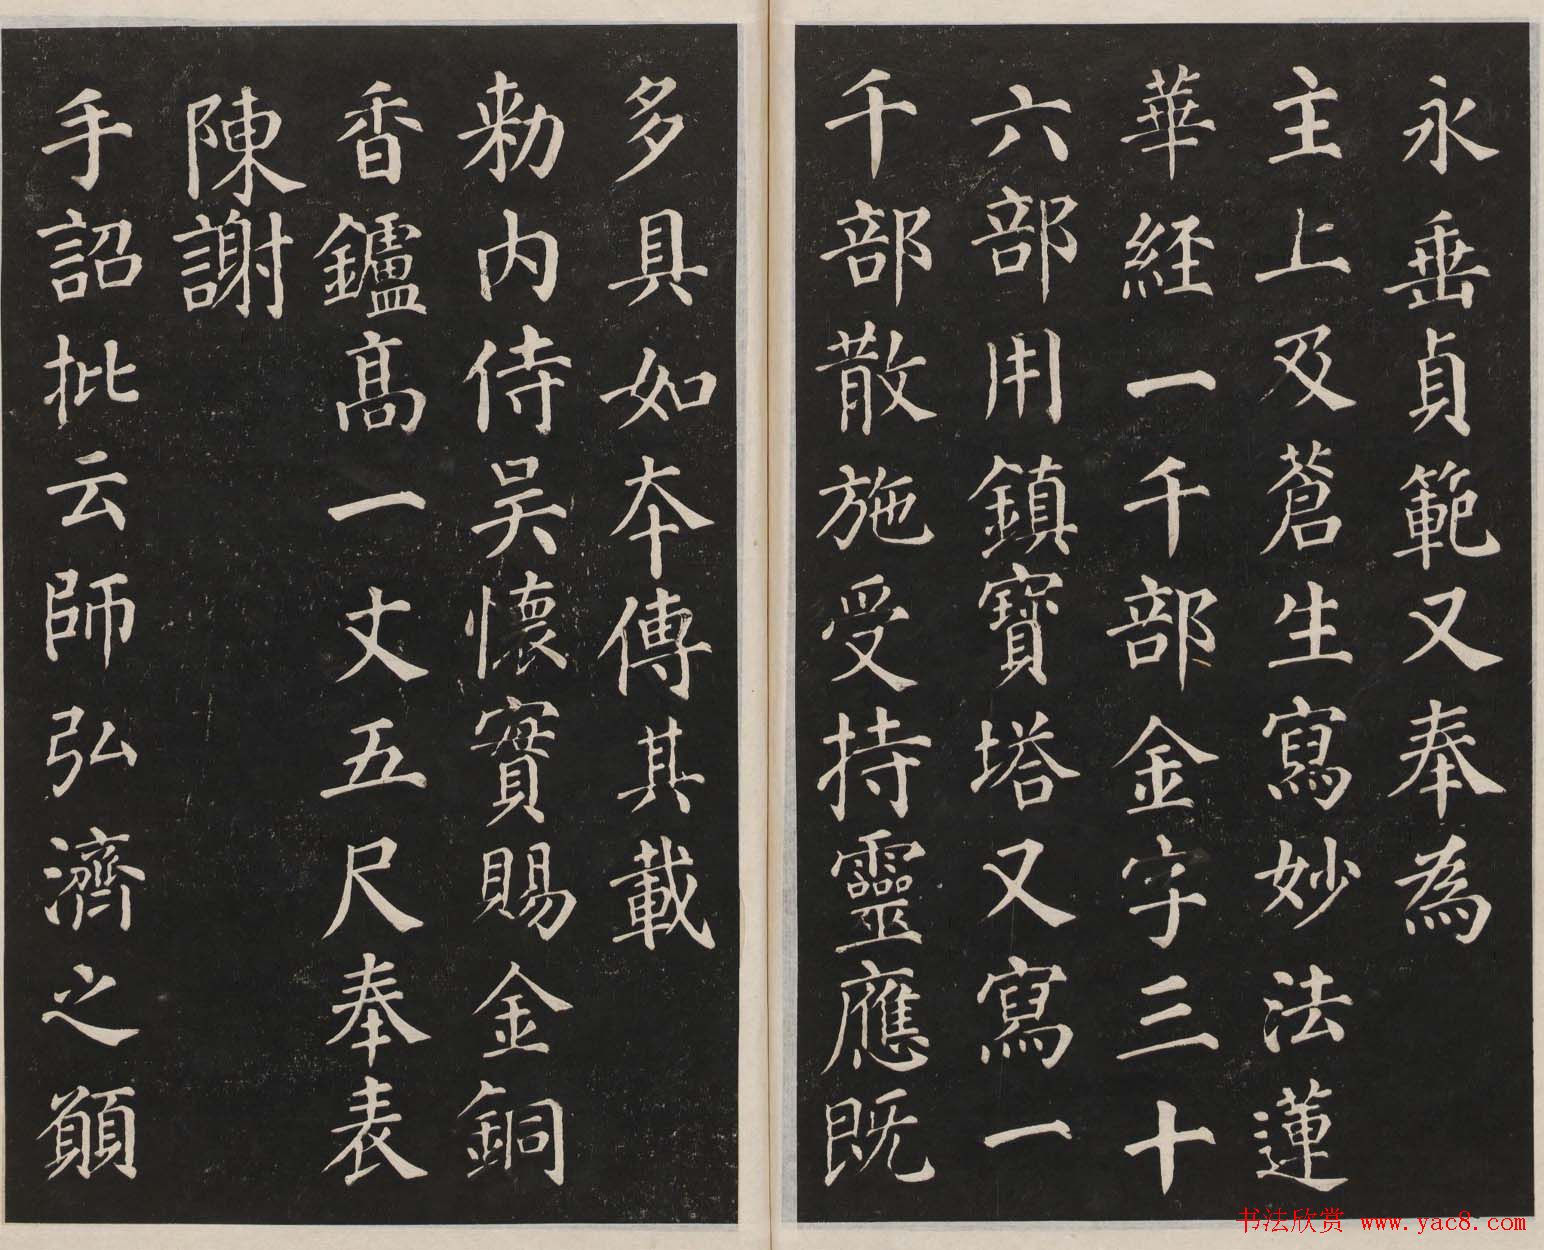 永垂貞範又奉為
主上及蒼生寫妙法蓮
華経一千部金字三十
六部用鎮寶塔又寫一
千部散施受持靈應既
多具如本傳其載
勑内侍吴懷實賜金銅
香鑪髙一丈五尺奉表
陳謝
手詔批云師弘濟之願
书法欣赏 www.yac8.com